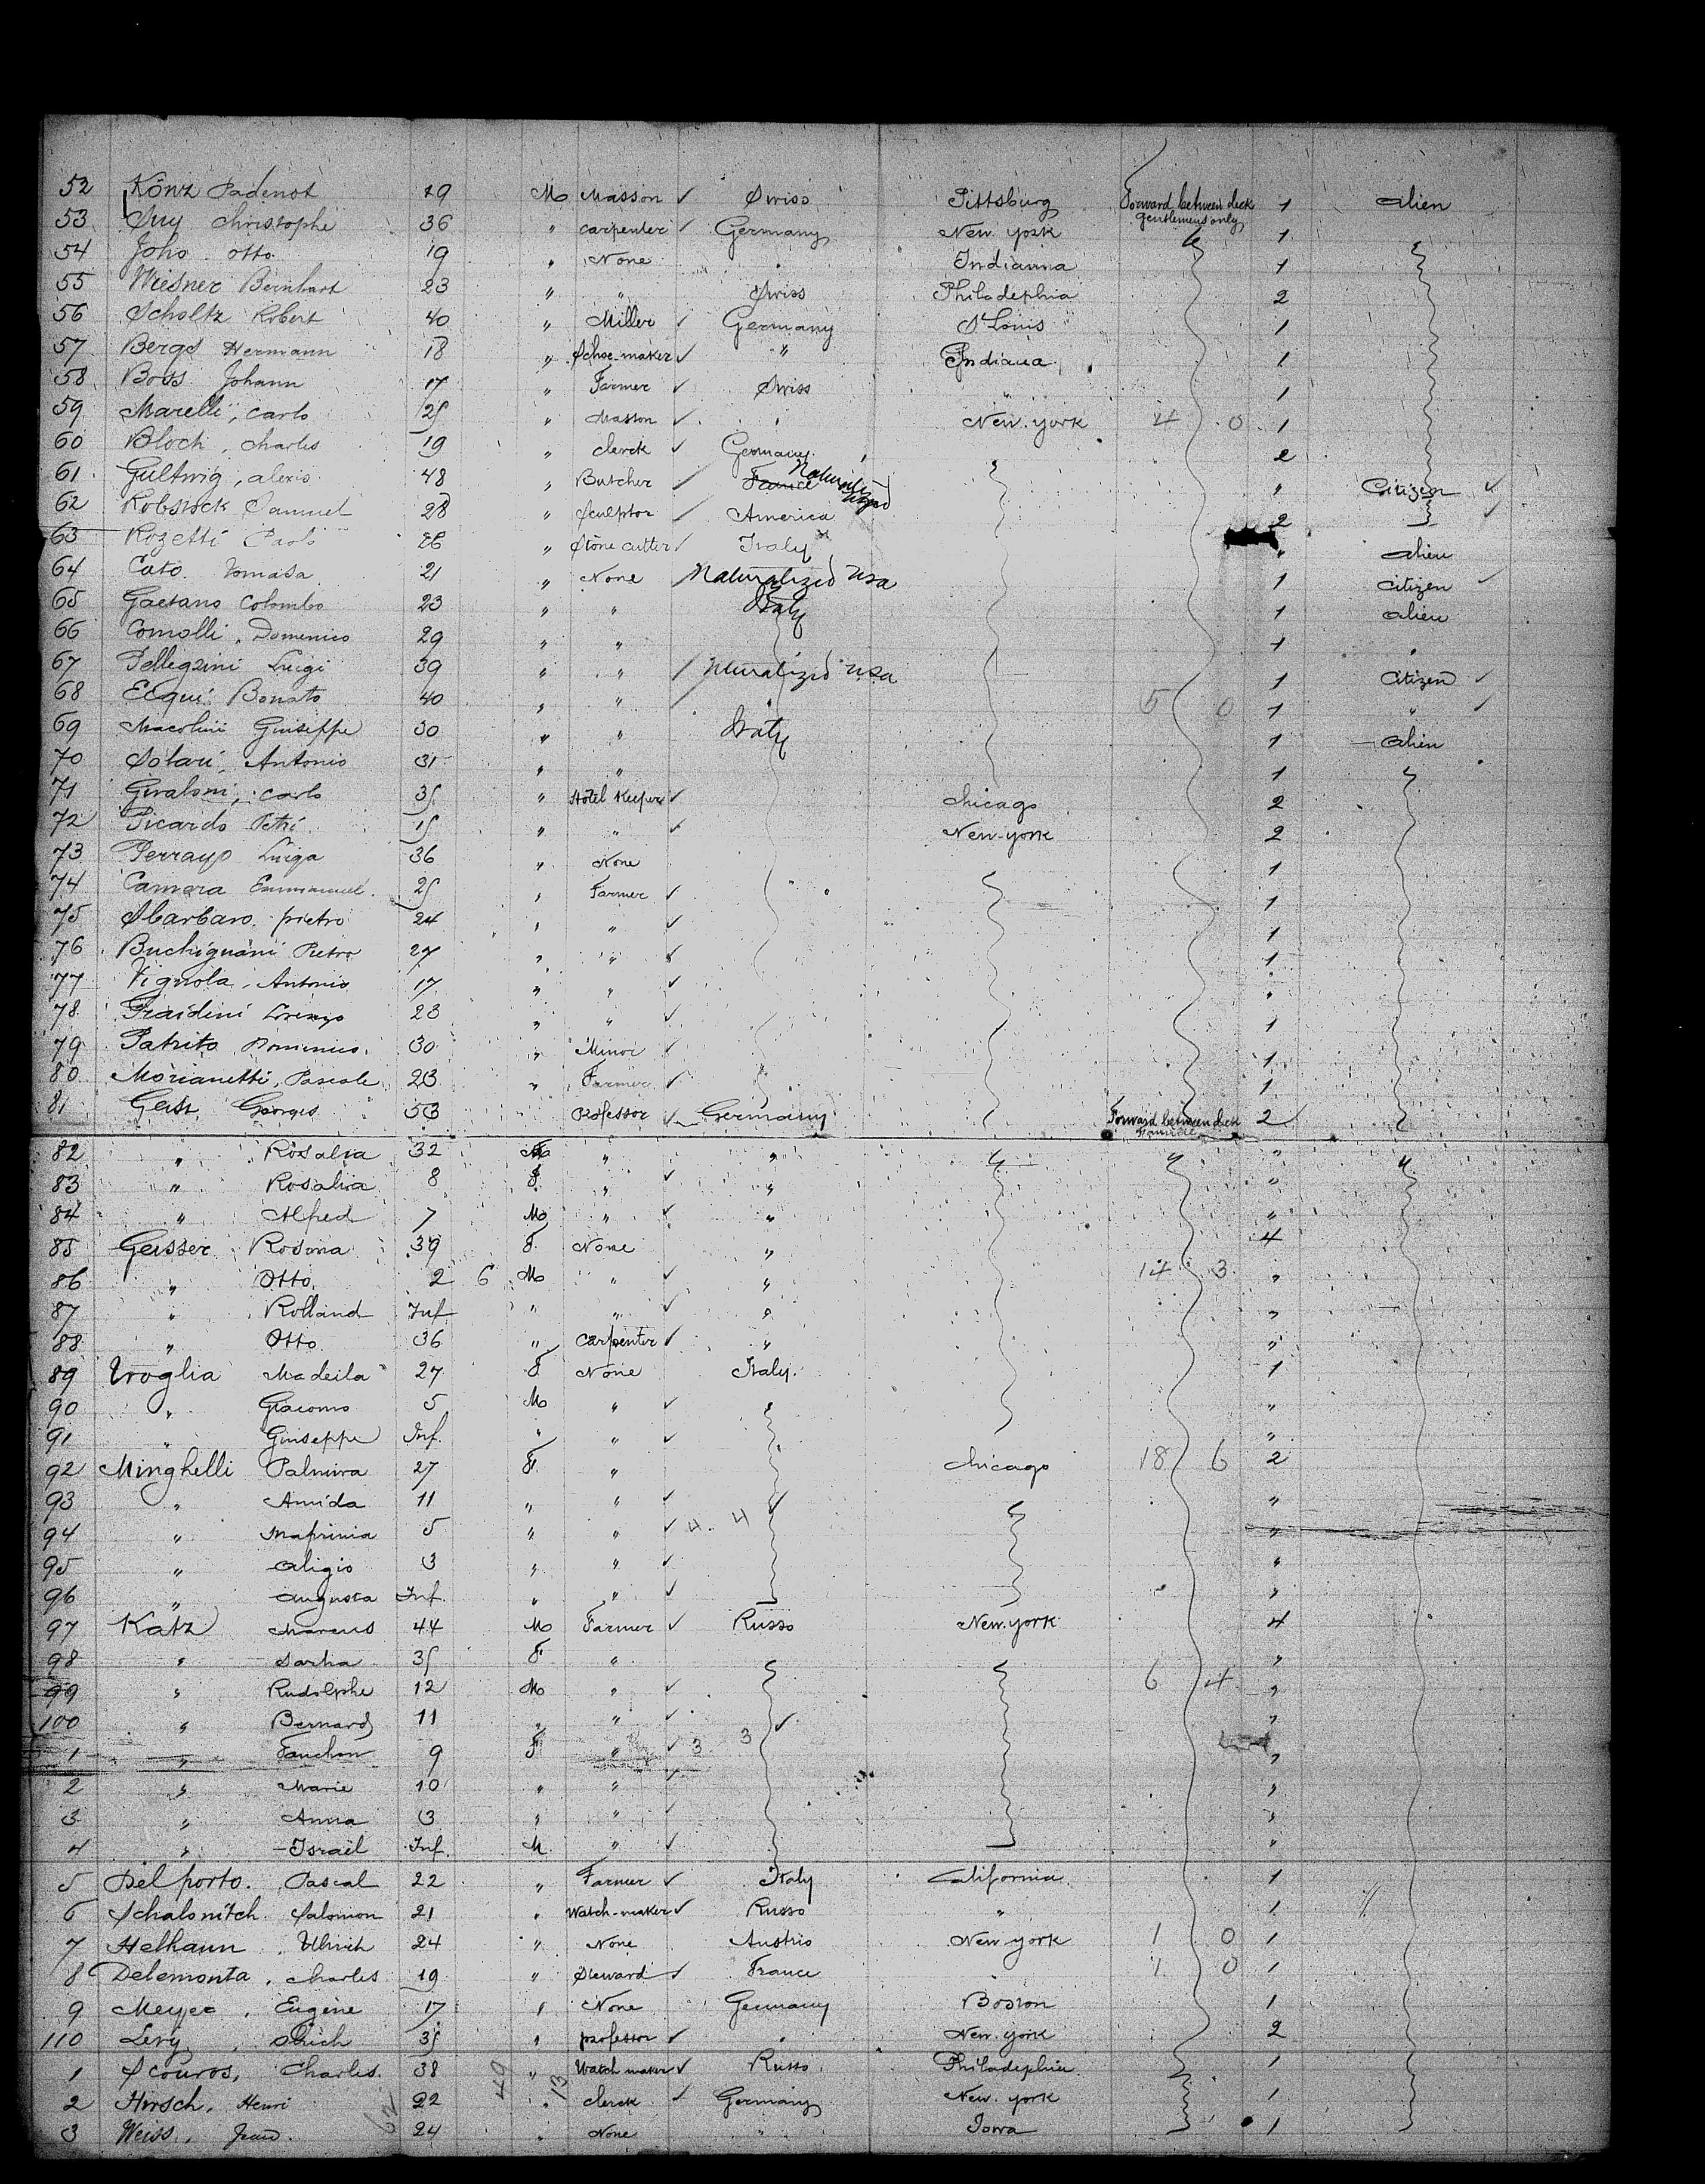 52 Könz Padenot 29 M Masson ✓ Swiss Pittsburg Forward between deck gentlemens only 1 alien
53 Suy Christophe 36 " carpenter ✓ Germany New york " 1
54 Joho Otto 19 " None " Indianna 1 "
55 Wiesner Bernhart 23 " " Swiss Philadephia 2
56 Scholtz Robert 40 " Miller ✓ Germany St Louis 1
57 Bergd Hermann 18 " Schoe-maker ✓ " Indiana 1
58 Boss Johann 17 " Farmer ✓ Swiss " 1
59 Marelli, Carlo 25 " Masson ✓ " New. york 4 0 1
60 Bloch, Charles 19 " clerck ✓ Germany " 2
61 Gultwig, alexis 48 " Butcher ✓ France Naturalized " Citizen ✓
62 Robstock Samuel 28 " Sculptor ✓ America 2 " ✓
63 Rozetti Paolo 26 " Stone cutter ✓ Italy " alien
64 Cato Tomasa 21 " None Naturalized USA 1 citizen ✓
65 Gaetano Colombo 23 " " Italy 1 alien
66 Comolli, Domenico 29 " " 1 "
67 Pellegrini Luigi 39 " " ✓ Nturalized USA 1 Citizen ✓
68 Ecqui Bonato 40 " " ✓ " 5 0 1 " ✓
69 Macolini Giuseppe 30 " " Italy 1 alien
70 Solari, Antonio 31 " " 1 "
71 Giraloni, Carlo 35 " Hotel Keeper ✓ Chicago 2
72 Picardo Petri 15 " " ✓ New-york 2
73 Perrayo Luiga 36 " None 1
74 Camera Emmanuel 25 " Farmer ✓ 1
75 Sbarbaro pietro 24 " " ✓ 1
76 Buchignani Pietro 27 " " ✓ 1
77 Vignola, Antonio 17 " " ✓ "
78 Fraidini Lorenzo 23 " " ✓ 1
79 Patrito Domenico 30 " Minor ✓ 1
80 Morianetti, Pascale 23 " Farmer ✓ 1
81 Geist Georges 53 Professor ✓ Germany Forward between deck 2
82 " Rosalia 32 " " "
83 " Rosalia 8 F " ✓ " "
84 " Alfred 7 M " ✓ " "
85 Geisser Rosina 39 F. None " 4
86 " Otto 2 6 M " ✓ " 14 3 "
87 " Rolland Inf " " ✓ " "
88 " Otto 36 " Carpenter ✓ " "
89 Troglia Madeila 27 F None Italy. 1
90 " Giacomo 5 M " ✓ " "
91 " Giuseppe Inf. " " ✓ "
92 Minghelli Palmira 27 F. " Chicago 18 6 2
93 " Amida 11 " " ✓ ✓ "
94 " Mafrinia 5 " " ✓ 4. 4 "
95 " Aligio 3 " " ✓ "
96 " Augusta Inf. " " ✓ "
97 Katz Marcus 44 M Farmer ✓ Russo New.york 4
98 " Sarha 35 F. " "
99 " Rudolphe 12 M " ✓ 6 4 "
100 " Bernard 11 " " ✓ ✓ "
1 " Fanchon 9 F " ✓ 3 3 "
2 " Marie 10 " " ✓ "
3 " Anna 3 " " ✓ "
4 " Israël Inf. M " ✓ "
5 Del porto. Pascal 22 " Farmer ✓ Italy California. 1
6 Schalsnitch Salomon 21 " Watch-maker ✓ Russo " 1
7 Helhann, Ulrich 24 " None Austrio New york 1 0 1
8 Delemonta, Charles 19 " Steward ✓ France " 1 0 1
9 Meyer, Eugène 17 " None Germany Boston 1
110 Levy, 35 " professor ✓ " New. york 2
1 Scouros, Charles. 38 " Watch maker ✓ Russo. Philadephia 1
2 Hirsch, Henri 22 " clerck ✓ Germany New. york 1
3 Weiss, Jean 24 " None " Iowa 1
62 49 13